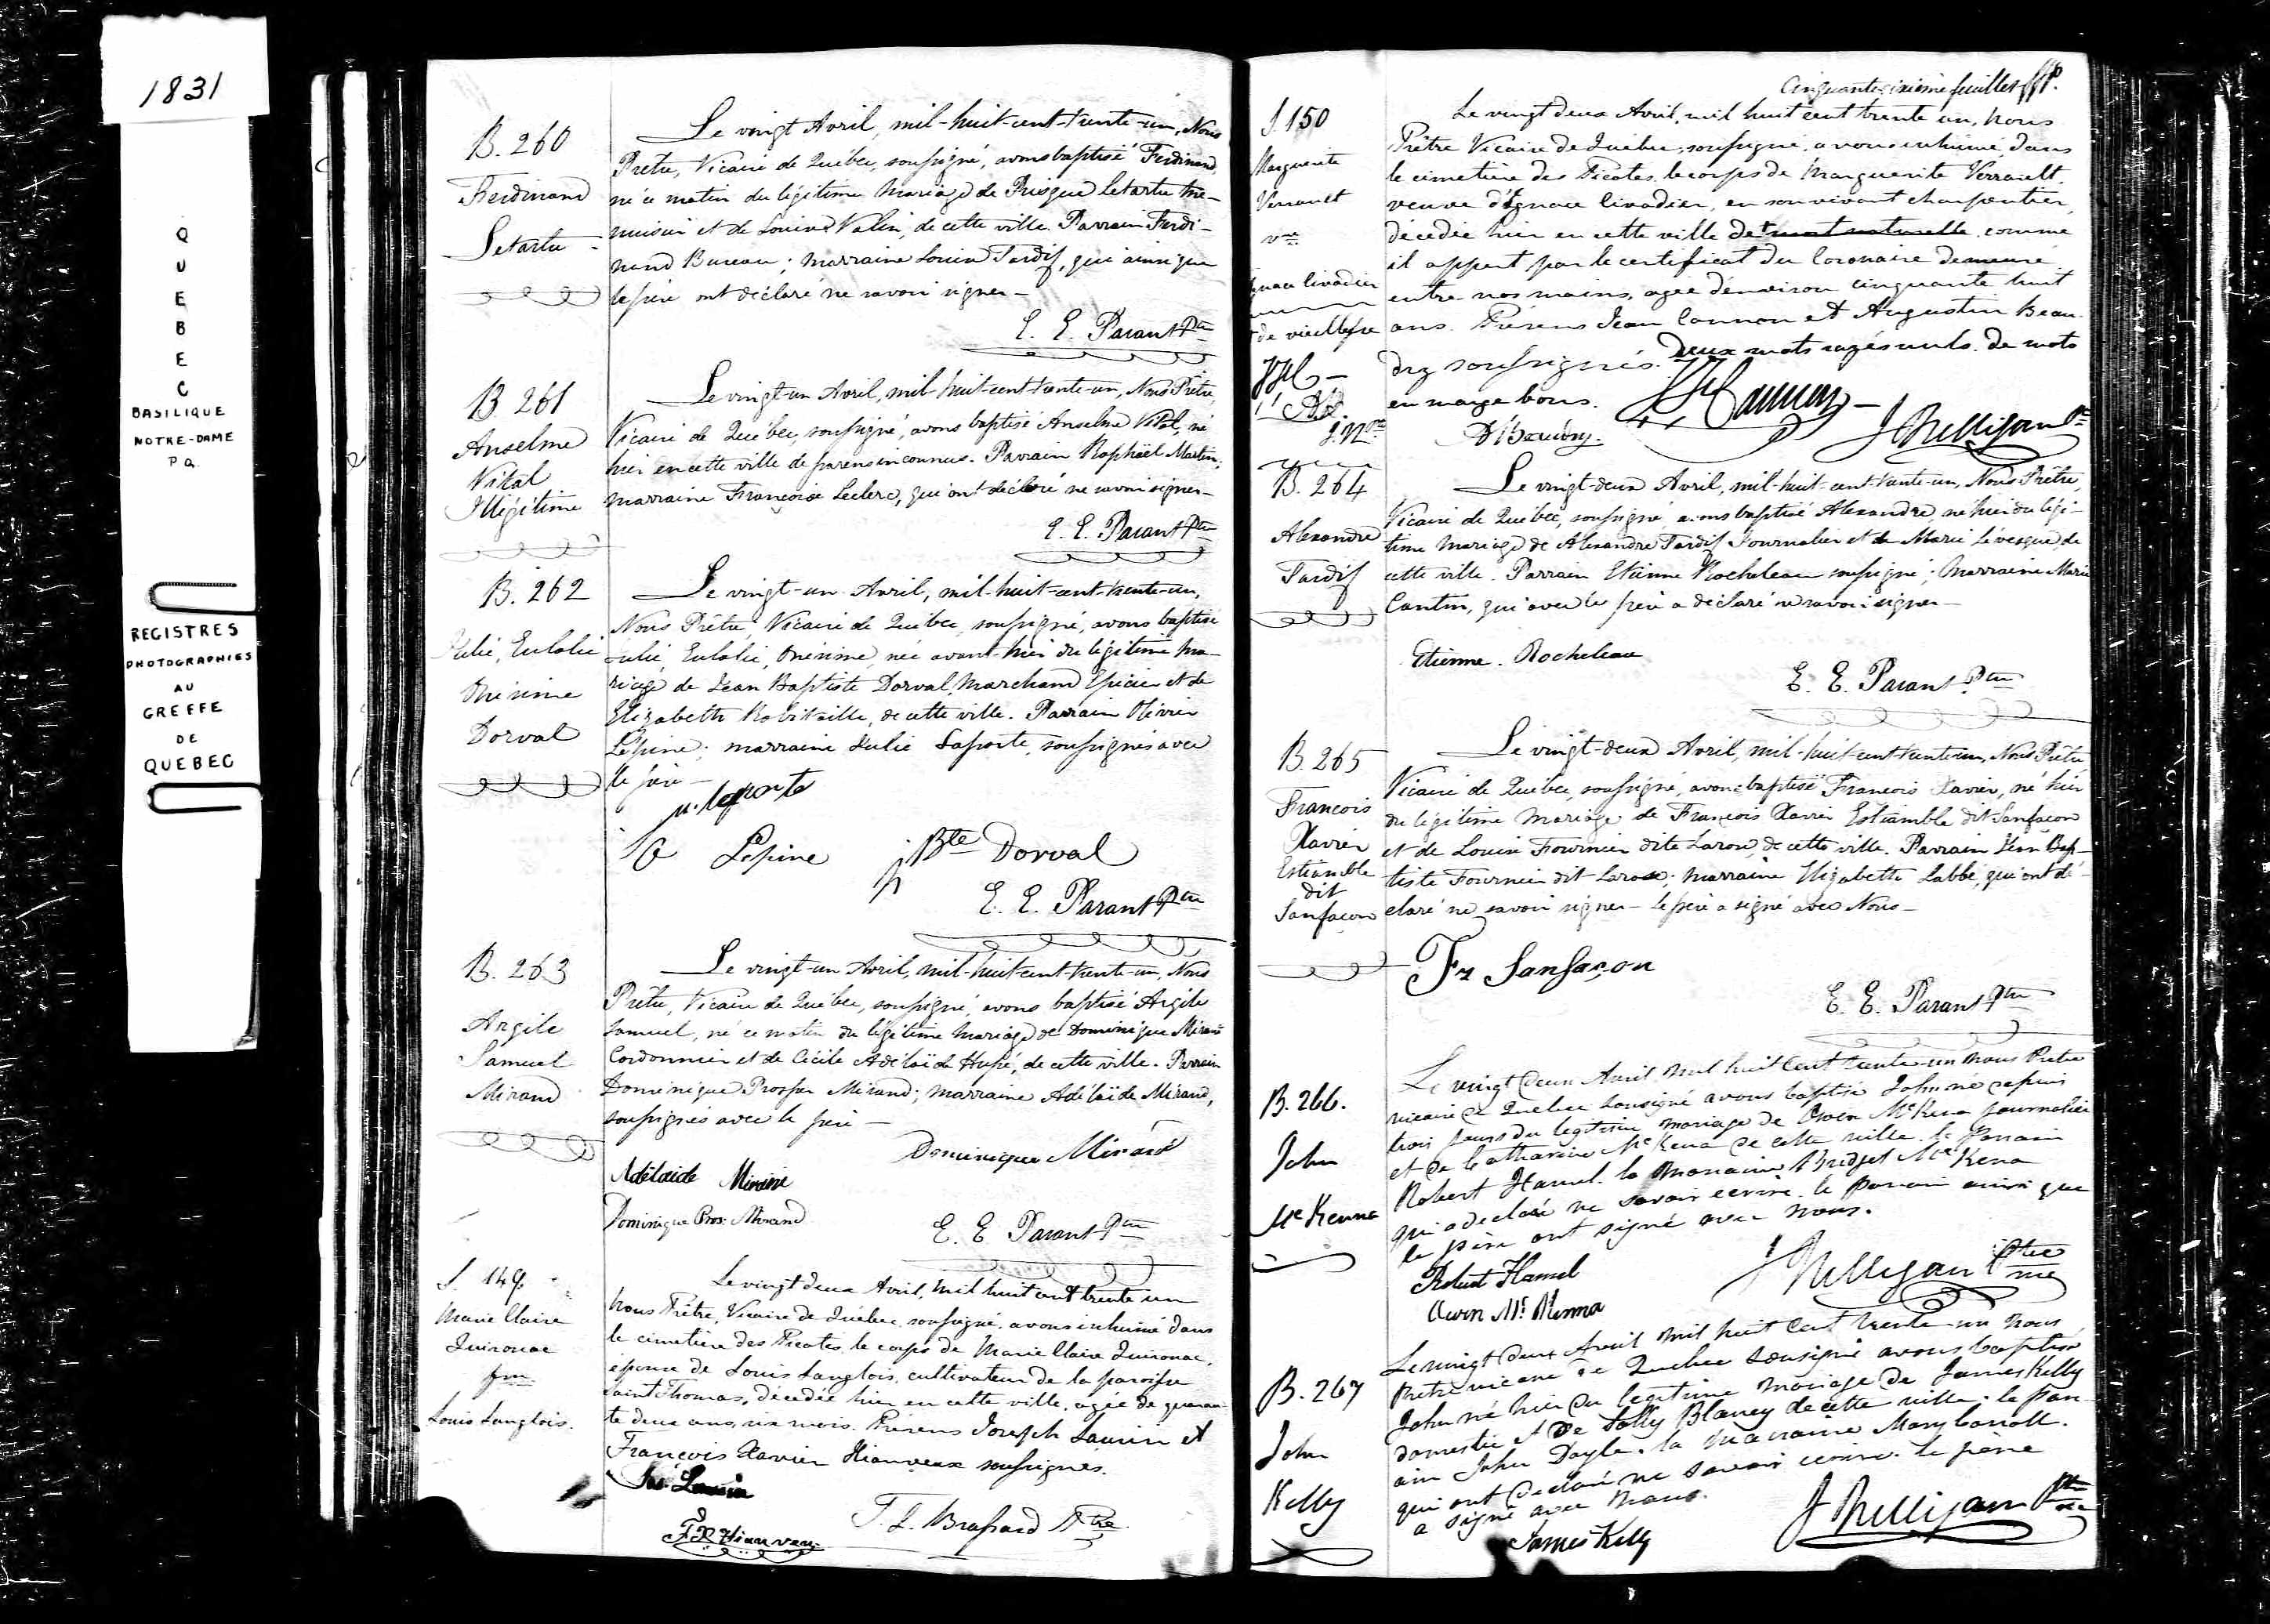 1831
QUEBEC
BASILIQUE
NOTRE-DAME
P.Q.
REGISTRES
PHOTOGRAPHIES
AU
GREFFE
DE
QUEBEC
B. 260
Ferdinand
Letartre
Le vingt Avril, mil-huit-cent-trente-un, Nous
Prêtre, Vicaire de Québec, soussigné, avons baptisé Ferdinand,
né ce matin du légitime Mariage de Prisque Letartre Me-
nuisier et de Louise Valin, de cette ville. Parrain Ferdi-
nand Bureau; Marraine Louise Tardif, qui ainsi que
le père ont déclaré ne savoir signer—
E. E. Parant Ptre
B. 261
Anselme
Vital
Illégitime
Le vingt-un Avril, mil-huit-cent-trente-un, Nous Prêtre
Vicaire de Québec, soussigné, avons baptisé Anselme Vital, né
hier en cette ville de parens inconnus. Parrain Raphaël Martin;
marraine Françoise Leclerc, qui ont déclaré ne savoir signer—
E. E. Parant Ptre
B. 262
Julie, Eulalie
Onésime
Dorval
Le vingt-un Avril, mil-huit-cent-trente-un,
Nous Prêtre, Vicaire de Québec, soussigné, avons baptisé
Julie, Eulalie, Onésime, née avant-hier du légitime ma-
riage de Jean Baptiste Dorval, Marchand Epicier et de
Elizabeth Robitaille, de cette ville. Parrain Olivier
Lépine; marraine Julie Laporte, soussignés avec
le père—
laporte
Lepine
j Bte Dorval
E. E. Parant Ptre
B. 263
Argile
Samuel
Mirand
Le vingt-un Avril, mil-huit-cent-trente-un, Nous
Prêtre, Vicaire de Québec, soussigné, avons baptisé Argile
Samuel, né ce matin du légitime Mariage de Dominique Mirand
Cordonnier et de Cécile Adélaïde Hupé, de cette ville. Parrain
Dominique Prosper Mirand; marraine Adélaïde Mirand,
soussignés avec le père—
Dominique Mirand
Adélaide Mirand
Dominique Pros. Mirand
E. E. Parant Ptre
S. 149
Marie Claire
Quirouac
fm
Louis Langlois.
Le vingt deux Avril, mil huit cent trente un
Nous Prêtre, Vicaire de Québec, soussigné, avons inhumé dans
le cimetière des Picotés, le corps de Marie Claire Quirouac,
épouse de Louis Langlois, cultivateur de la paroisse
Saint Thomas, décédée hier en cette ville, agée de quaran-
te deux ans, six mois. Présens Joseph Laurin et
François Xavier Hianveux soussignés.
Jos. Laurin
F. X. Hianveux
Brassard Ptre
Cinquante sixième feuillet
S 150
Marguerite
Verrault
vve
Ignace livadier
de vieillesse
Le vingt deux Avril, mil huit cent trente un, nous
Prêtre Vicaire de Québec, soussigné, avons inhumé, dans
le cimetière des Picotés, le corps de Marguerite Verrault,
veuve d'Ignace livadier, en son vivant charpentier,
décédée hier en cette ville de mort naturelle, comme
il appert par le certificat du Coronaire demeuré
entre nos mains, agée d'environ cinquante huit
ans. Présens Jean Cannon et Augustin Beau-
dry soussignés. Deux mots rayés nuls. de mots
en marge bons.
Cannon
A. Beaudry.
J Nelligan Ptre
B. 264
Alexandre
Tardif
Le vingt-deux Avril, mil-huit-cent-trente-un, Nous Prêtre,
Vicaire de Québec, soussigné, avons baptisé Alexandre, né hier du légi-
time Mariage de Alexandre Tardif Journalier et de Marie Lévesque, de
cette ville. Parrain Etienne Rocheleau soussigné; Marraine Marie
Cantin, qui avec le père a déclaré ne savoir signer—
Etienne. Rocheleau
E. E. Parant Ptre
B. 265
François
Xavier
Estiamble
dit
Sanfaçon
Le vingt-deux Avril, mil-huit-cent-trente-un, Nous Prêtre
Vicaire de Québec, soussigné, avons baptisé François Xavier, né hier
du légitime Mariage de François Xavier Estiamble dit Sanfaçon
et de Louise Fournier dite Larose, de cette ville. Parrain Jean Bap-
tiste Fournier dit Larose; Marraine Elizabeth Labbé, qui ont dé-
claré ne savoir signer— le père a signé avec Nous—
Fr Sanfaçon
E. E. Parant Ptre
B. 266.
John
McKenna
Le vingt deux Avril mil huit cent trente un nous Prêtre
vicaire de Quebec sousigné avons baptisé John né depuis
trois jours du legitime mariage de Owen McKena journalier
et de Catharine McKena de cette ville. le Parrain
Robert Hamel. la Marraine Bridget McKena
qui a declaré ne savoir ecrire. le parrain ainsi que
le père ont signé avec nous.
Robert Hamel
Owen McKenna
J Nelligan Ptre
B. 267
John
Kelly
Le vingt deux Avril mil huit cent trente un nous
Pretre vicaire de Quebec sousigné avons baptisé
John né hier du legitime mariage de James Kelly
domestic et de Sally Blaney de cette ville. le parr-
ain John Doyle. la Marraine Mary Carroll.
qui ont declaré ne savoir ecrire. le père
a signé avec nous.
James Kelly
J Nelligan Ptre